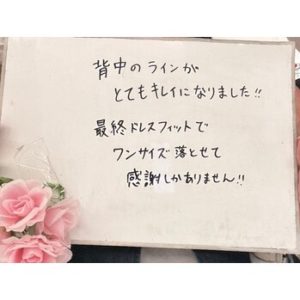 背中のラインが
とてもキレイになりました!!
最終ドレスフィットで
ワンサイズ落とせて
感謝しかありません!!